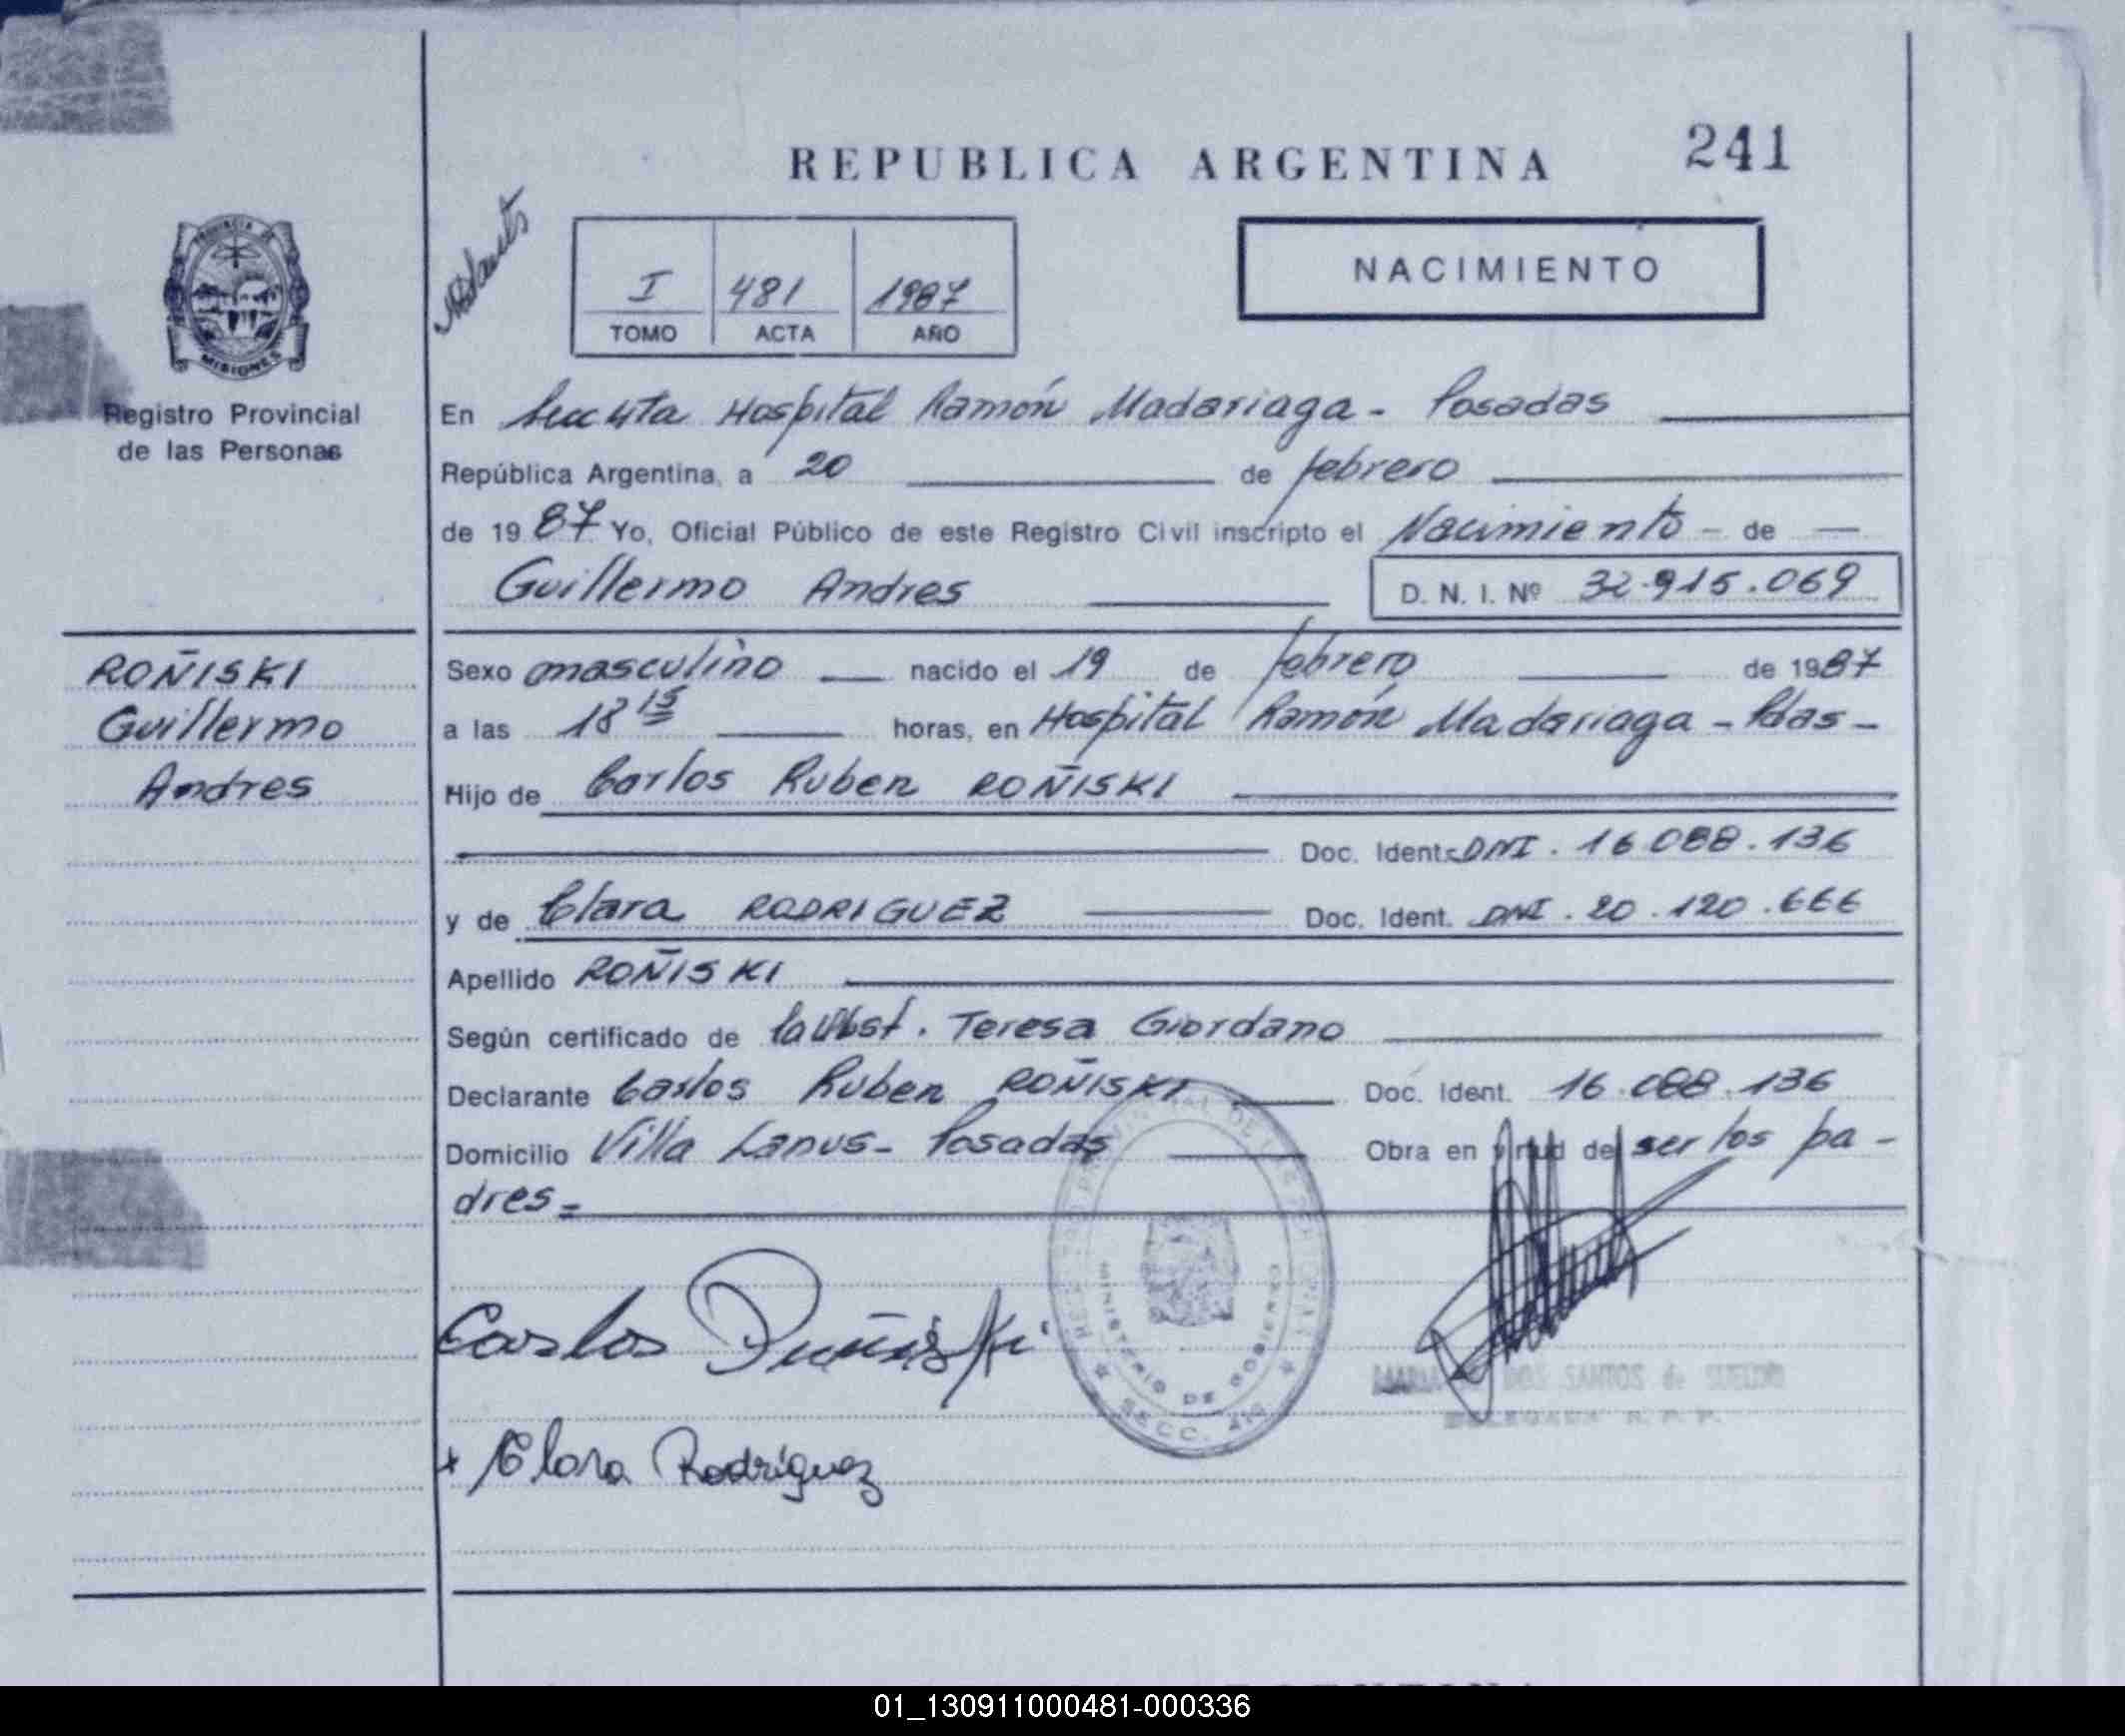 REPUBLICA ARGENTINA
241
PROVINCIA DE
MISIONES
Registro Provincial
de las Personas
I 481 1987
TOMO ACTA AÑO
NACIMIENTO
En Secc 4ta Hospital Ramón Madariaga - Posadas
República Argentina, a 20 de febrero
de 1987 Yo, Oficial Público de este Registro Civil inscripto el Nacimiento - de
Guillermo Andres D. N. I. Nº 32.915.069
ROÑISKI
Guillermo
Andres
Sexo masculino nacido el 19 de febrero de 1987
a las 18 15 horas, en Hospital Ramón Madariaga - Pdas -
Hijo de Carlos Ruben ROÑISKI
Doc. Ident. DNI. 16.088.136
y de Clara RODRIGUEZ Doc. Ident. DNI. 20.120.666
Apellido ROÑISKI
Según certificado de la Obst. Teresa Giordano
Declarante Carlos Ruben ROÑISKI Doc. Ident. 16.088.136
Domicilio Villa Lanus - Posadas Obra en virtud de ser los pa-
dres =
MINISTERIO DE GOBIERNO
SECC. 4ta
Carlos Ruñiski
DOS SANTOS de SUELDO
DELEGADA R. P. P.
Clara Rodríguez
01_130911000481-000336